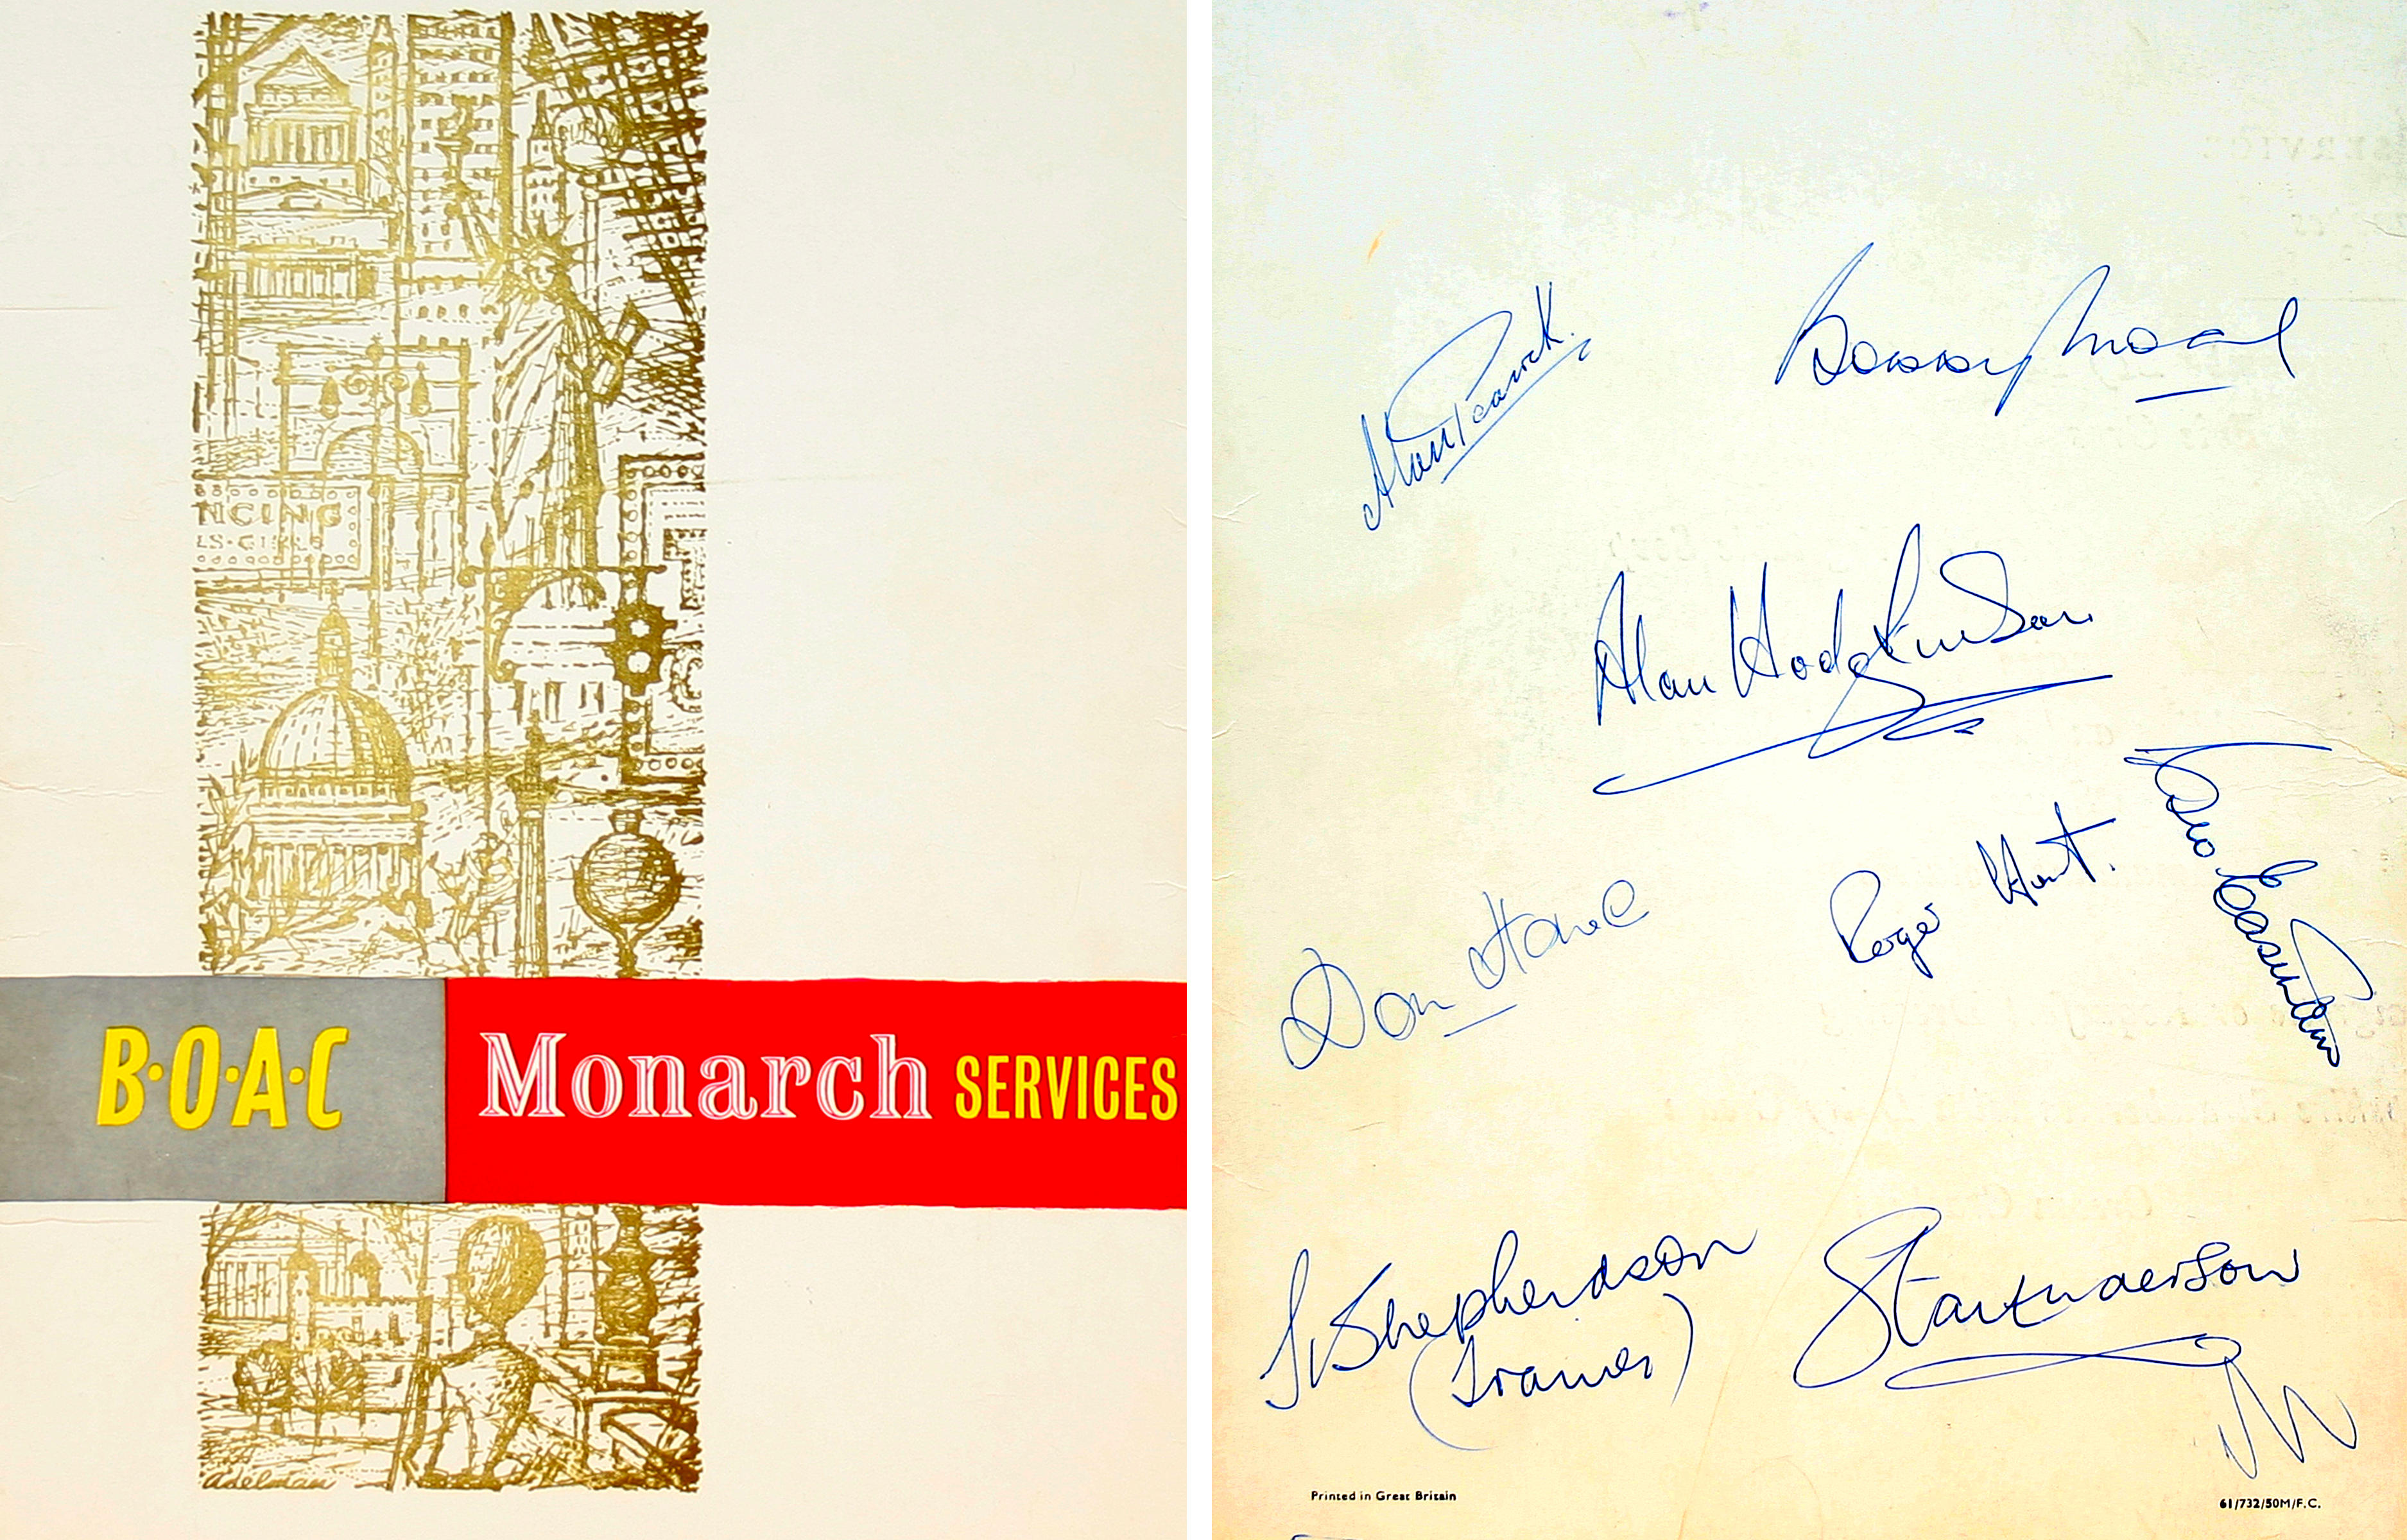 NCING
LS·GIRLS
B·O·A·C Monarch SERVICES
adelman
Alan Peacock.
Bobby Moore
Alan Hodgkinson
Geo. Eastham
Roger Hunt.
Don Howe
Shepherdson
(Trainer)
Stan Anderson
Printed in Great Britain
61/732/50M/F.C.